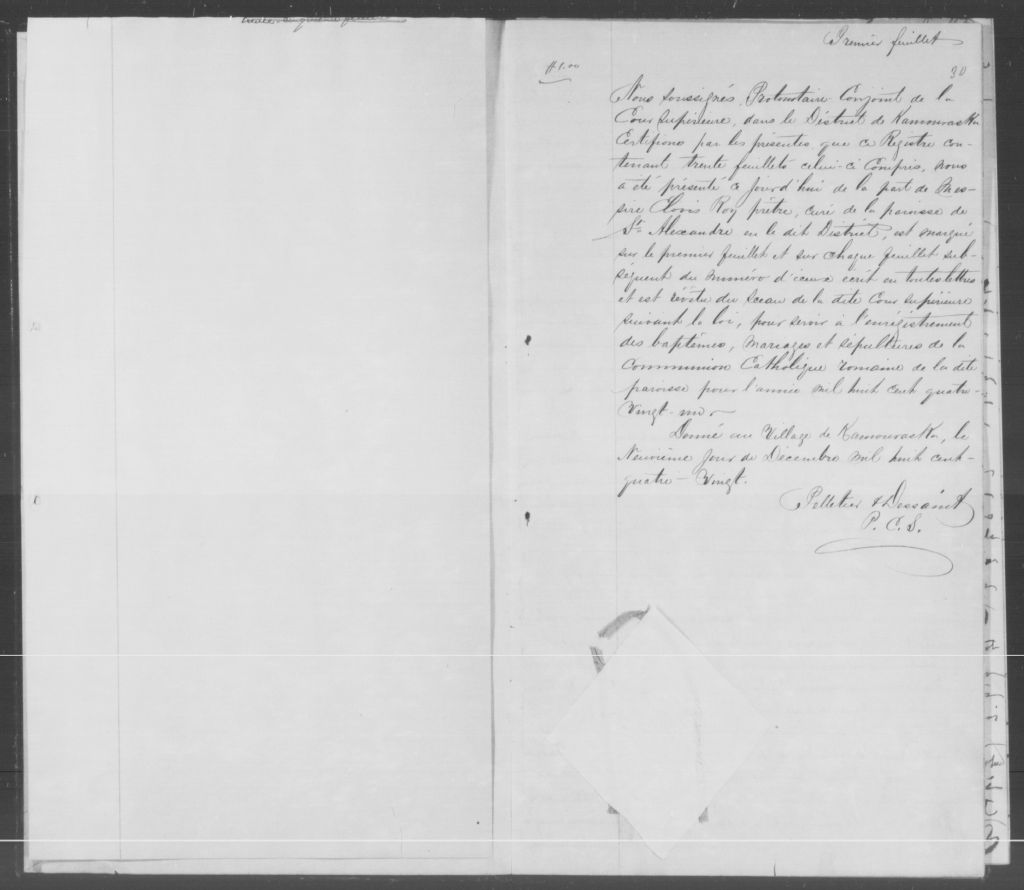 Premier feuillet
30
$1.00
Nous soussignés, Protonotaire Conjoint de la
Cour Supérieure, dans le District de Kamouraska
Certifions par les présentes, que ce Régistre con-
tenant trente feuillets celui-ci Compris, nous
a été présenté ce jourd'hui de la part de Mes-
sire Clovis Roy prêtre, curé de la paroisse de
St. Alexandre en le dit District, est marqué
sur le premier feuillet et sur chaque feuillet sub-
séquent du numéro d'iceux écrit en toutes lettres
et est révêtu du Sceau de la dite Cour Supérieure
suivant la loi, pour servir à l'enrégistrement
des baptêmes, mariages et sépultures de la
Communion Catholique romaine de la dite
paroisse pour l'année mil huit cent quatre-
Vingt-un
Donné au Village de Kamouraska, le
Neuvième jour de Décembre mil huit cent-
quatre-Vingt.
Pelletier & Dessaint
P. C. S.